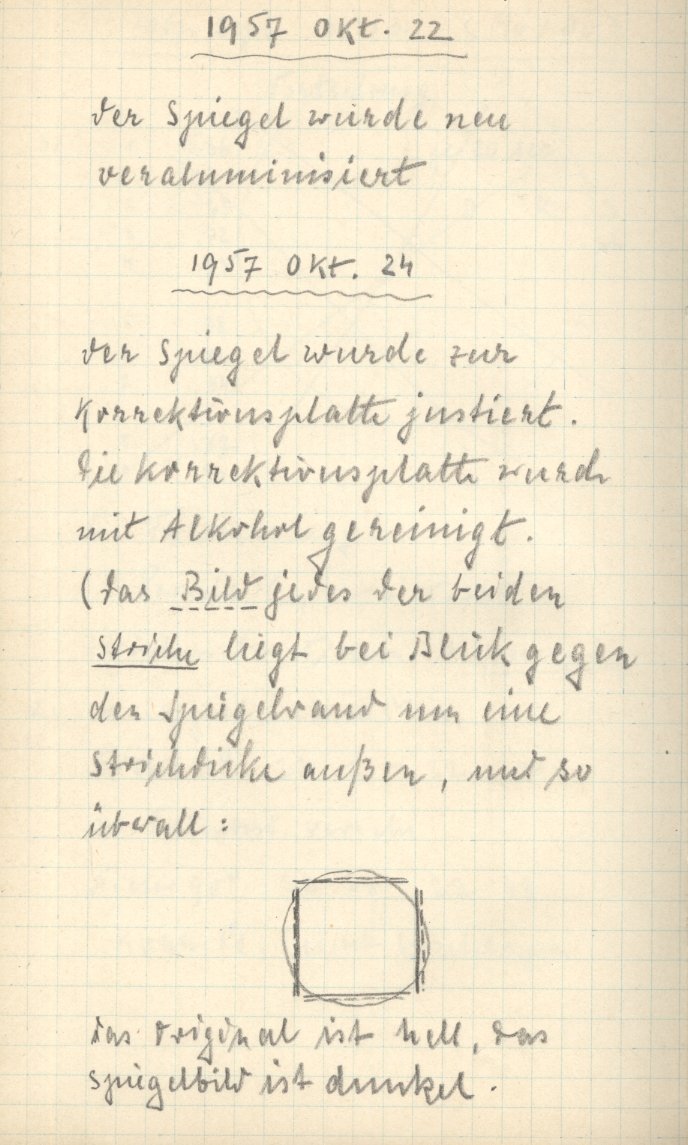 1957 Okt. 22
Der Spiegel wurde neu
veraluminisiert
1957 Okt. 24
Der Spiegel wurde zur
Korrektionsplatte justiert.
Die Korrektionsplatte wurde
mit Alkohol gereinigt.
(Das Bild jedes der beiden
Striche liegt bei Blick gegen
den Spiegelrand um eine
Strichdicke außen, und so
überall:
Das Original ist hell, das
Spiegelbild ist dunkel.